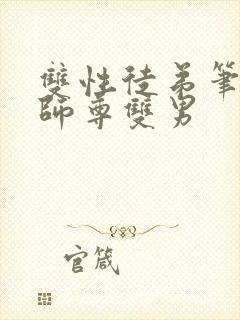 雙性徒弟筆
師尊雙男
官箴